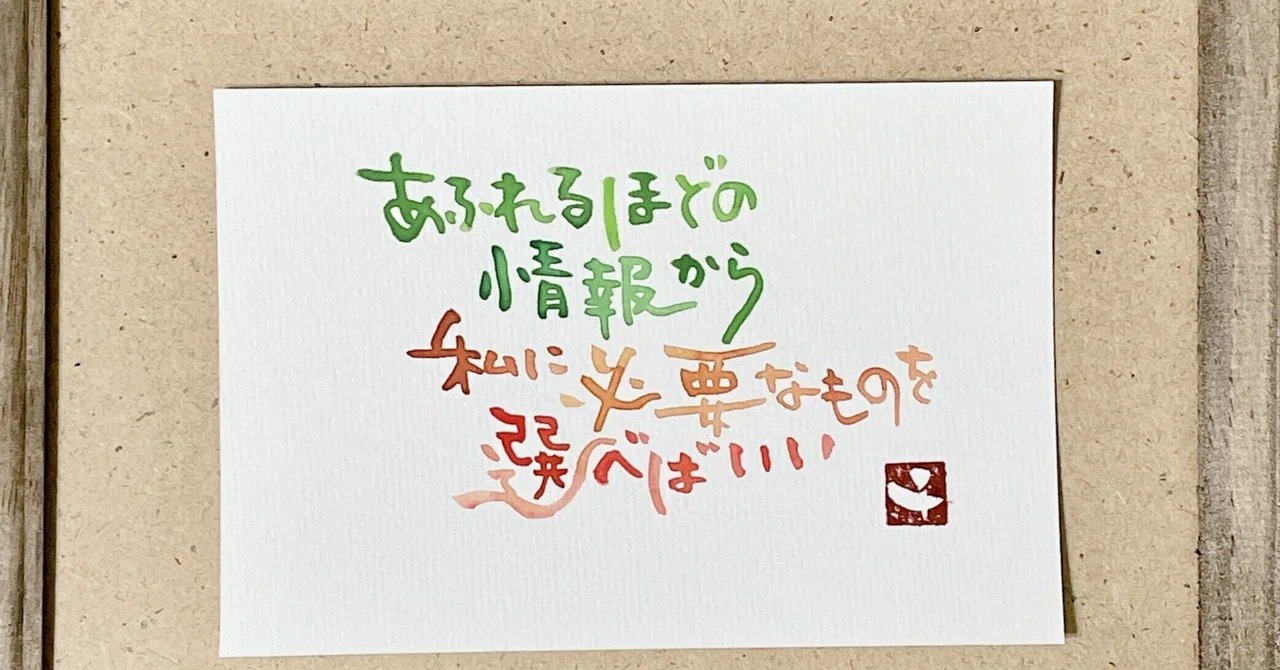 あふれるほどの
情報から
私に必要なものを
選べばいい